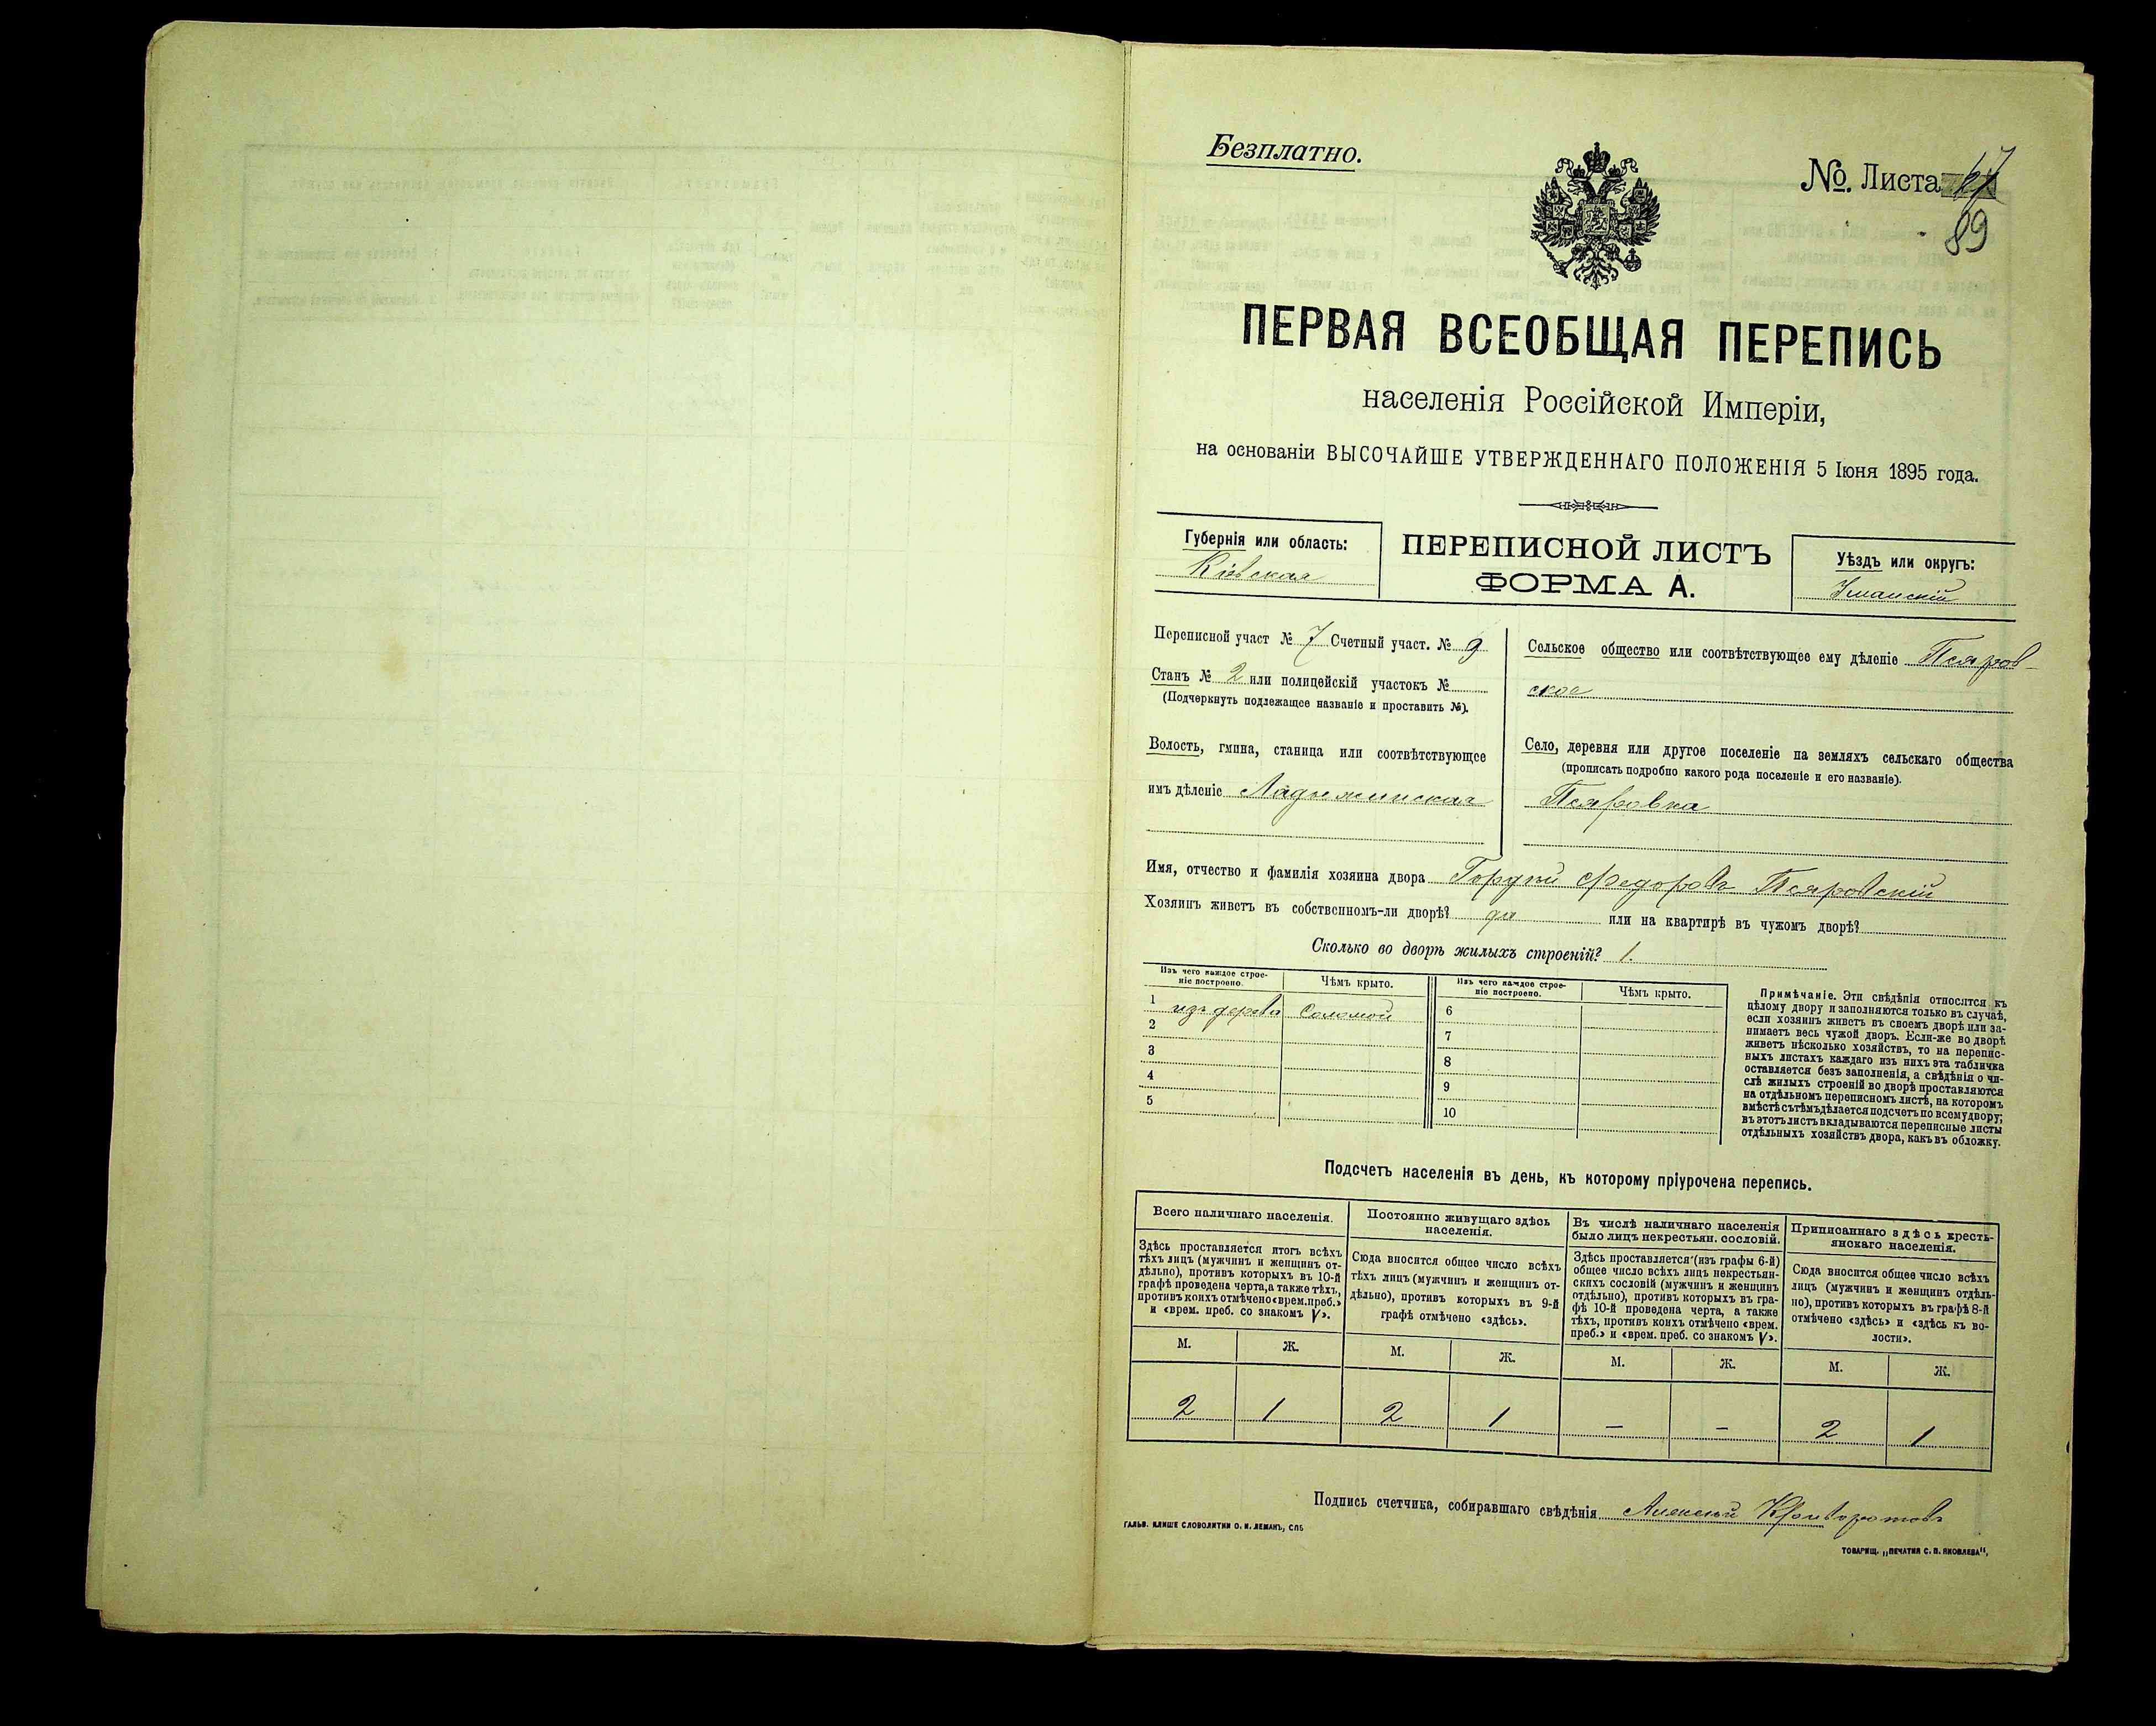 Безплатно.
№. Листа 47
89
ПЕРВАЯ ВСЕОБЩАЯ ПЕРЕПИСЬ
населенія Россійской Имперіи,
на основаніи ВЫСОЧАЙШЕ УТВЕРЖДЕННАГО ПОЛОЖЕНІЯ 5 Іюня 1895 года.
Губернія или область:
Кіевская
ПЕРЕПИСНОЙ ЛИСТЪ
ФОРМА А.
Уѣздъ или округъ:
Уманскій
Переписной участ № 7 Счетный участ. № 9
Станъ № 2 или полицейскій участокъ №
(Подчеркнуть подлежащее названіе и проставить №).
Волость, гмина, станица или соотвѣтствующее
имъ дѣленіе Ладыжинская
Сельское общество или соотвѣтствующее ему дѣленіе Псяров-
ское
Село, деревня или другое поселеніе на земляхъ сельскаго общества
(прописать подробно какого рода поселеніе и его названіе).
Псяровка
Имя, отчество и фамилія хозяина двора Гордѣй Федоровъ Псяровскій
Хозяинъ живетъ въ собственномъ-ли дворѣ? да или на квартирѣ въ чужомъ дворѣ?
Сколько во дворѣ жилыхъ строеній? 1.
Изъ чего каждое строе-
ніе построено.
Чѣмъ крыто.
Изъ чего каждое строе-
ніе построено.
Чѣмъ крыто.
1 изъ дерева Соломой
2
3
4
5
6
7
8
9
10
Примѣчаніе. Эти свѣдѣнія относятся къ
цѣлому двору и заполняются только въ случаѣ,
если хозяинъ живетъ въ своемъ дворѣ или за-
нимаетъ весь чужой дворъ. Если-же во дворѣ
живетъ нѣсколько хозяйствъ, то на перепис-
ныхъ листахъ каждаго изъ нихъ эта табличка
оставляется безъ заполненія, а свѣдѣнія о чи-
слѣ жилыхъ строеній во дворѣ проставляются
на отдѣльномъ переписномъ листѣ, на которомъ
вмѣстѣ съ тѣмъ дѣлается подсчетъ по всему двору;
въ этотъ листъ вкладываются переписные листы
отдѣльныхъ хозяйствъ двора, какъ въ обложку.
Подсчетъ населенія въ день, къ которому пріурочена перепись.
Всего наличнаго населенія.
Здѣсь проставляется итогъ всѣхъ
тѣхъ лицъ (мужчинъ и женщинъ от-
дѣльно), противъ которыхъ въ 10-й
графѣ проведена черта, а также тѣхъ,
противъ коихъ отмѣчено «врем. преб.»
и «врем. преб. со знакомъ V».
Постоянно живущаго здѣсь
населенія.
Сюда вносится общее число всѣхъ
тѣхъ лицъ (мужчинъ и женщинъ от-
дѣльно), противъ которыхъ въ 9-й
графѣ отмѣчено «здѣсь».
Въ числѣ наличнаго населенія
было лицъ некрестьян. сословій.
Здѣсь проставляется (изъ графы 6-й)
общее число всѣхъ лицъ некрестьян-
скихъ сословій (мужчинъ и женщинъ
отдѣльно), противъ которыхъ въ гра-
фѣ 10-й проведена черта, а также
тѣхъ, противъ коихъ отмѣчено «врем.
преб.» и «врем. преб. со знакомъ V».
Приписаннаго здѣсь кресть-
янскаго населенія.
Сюда вносится общее число всѣхъ
лицъ (мужчинъ и женщинъ отдѣль-
но), противъ которыхъ въ графѣ 8-й
отмѣчено «здѣсь» и «здѣсь къ во-
лости».
М. Ж. М. Ж. М. Ж. М. Ж.
2 1 2 1 – – 2 1
Подпись счетчика, собиравшаго свѣдѣнія Алексѣй Криворотовъ
ГАЛЬВ. КЛИШЕ СЛОВОЛИТНИ О. И. ЛЕМАНЪ, СПБ
ТОВАРИЩ. „ПЕЧАТНЯ С. П. ЯКОВЛЕВА“.